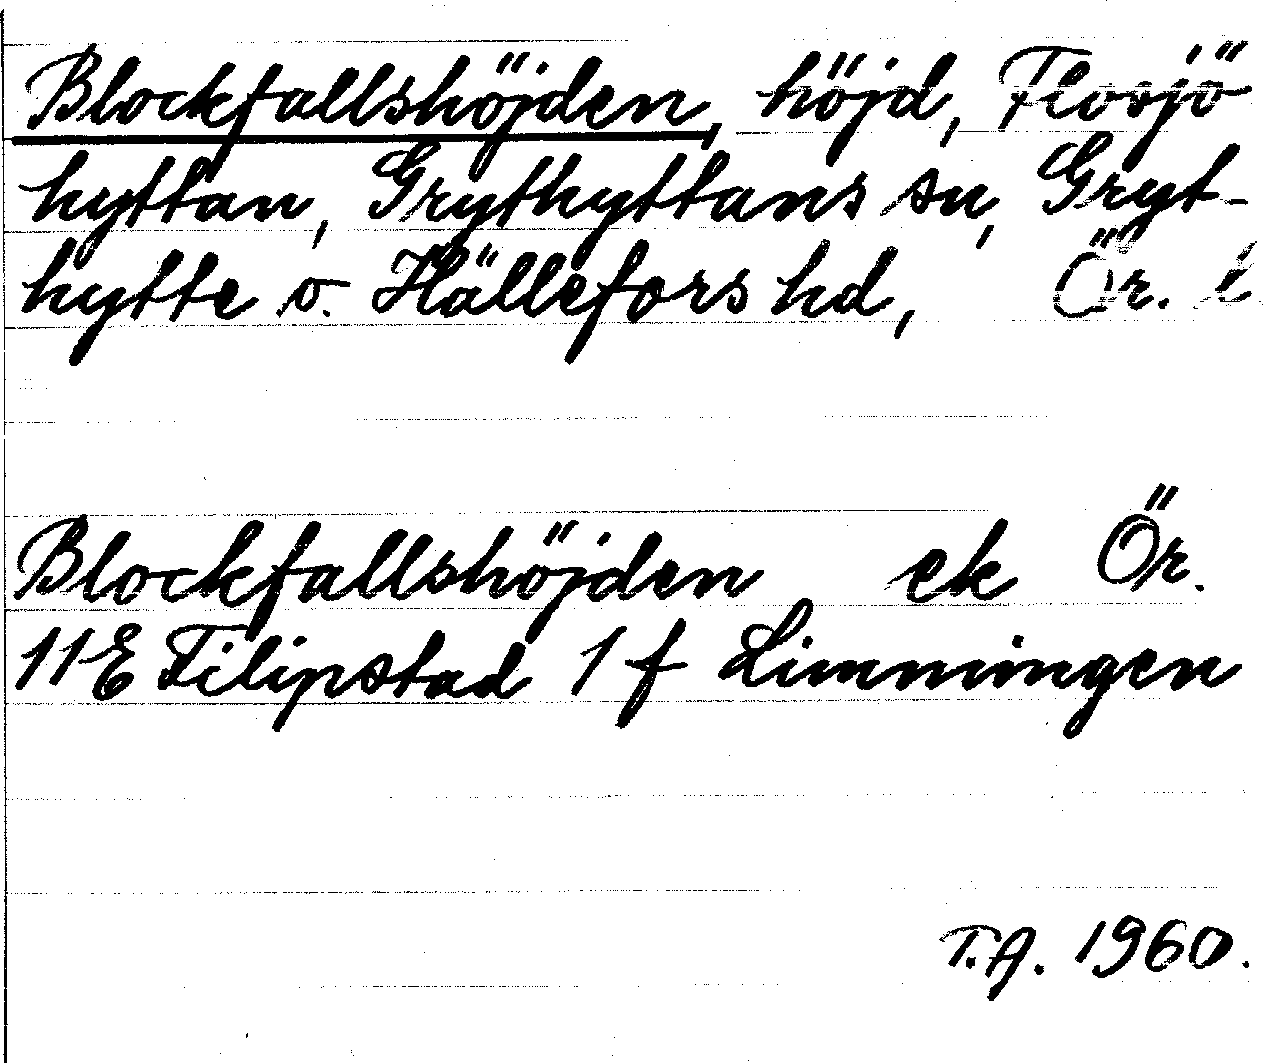 Blockfallshöjden, höjd, Flosjö
hyttan, Grythyttans sn, Gryt-
hytte o. Hällefors hd, Ör. l
Blockfallshöjden ek Ör.
11E Filipstad 1 f Limningen
T.A. 1960.